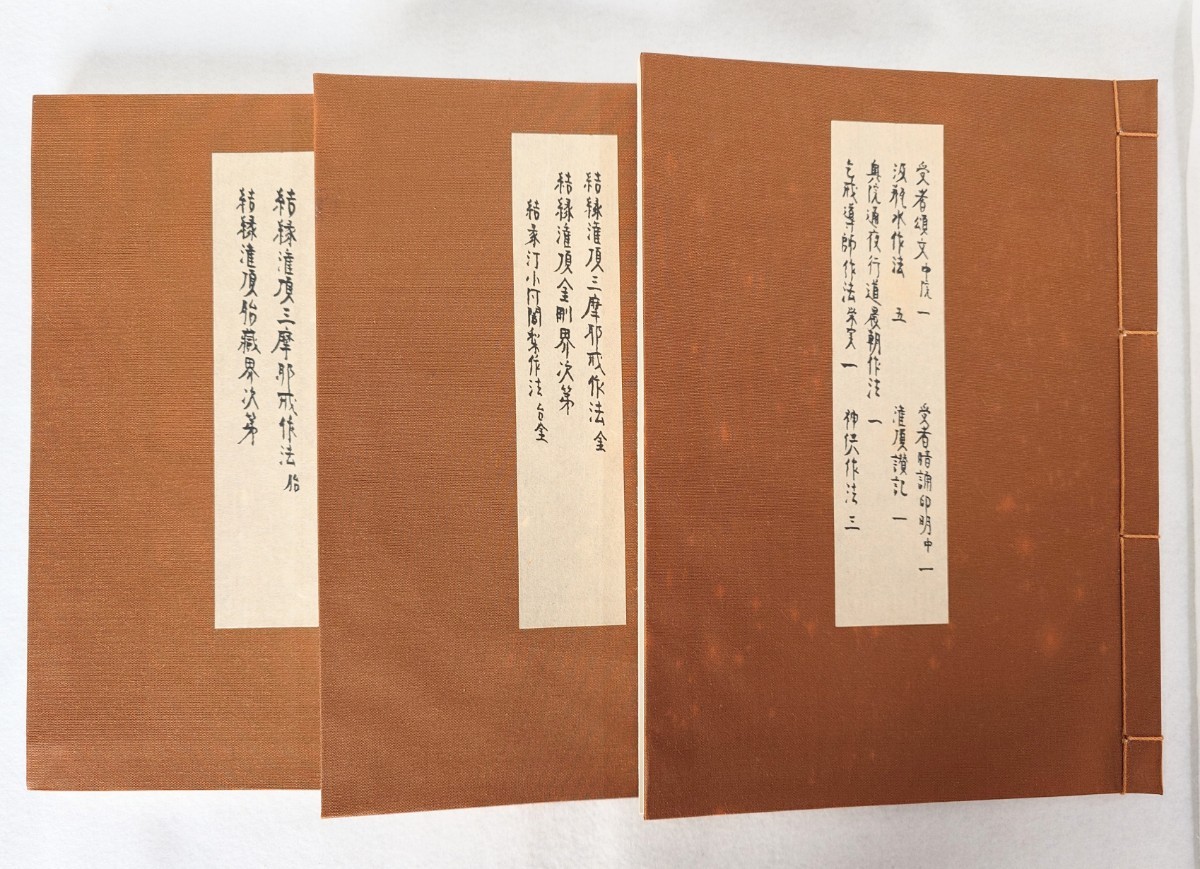 受者頌文中院一
受者暗誦印明中一
汲瓶水作法 五
灌頂讃記 一
奥院通夜行道晨朝作法 一
乞戒導師作法栄実一
神供作法 三
結縁灌頂三摩耶戒作法 金
結縁灌頂金剛界次第
結縁灌小阿闍梨作法 台金
結縁灌頂三摩耶戒作法 胎
結縁灌頂胎藏界次第